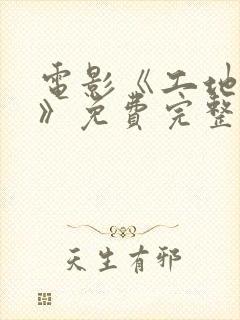 電影《工地
》免費完整
天生有邪